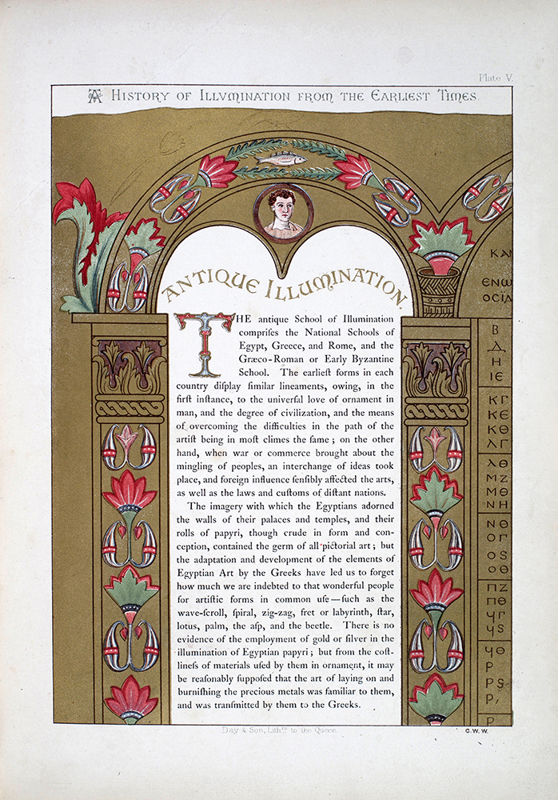 Plate V.
A HISTORY OF ILLVMINATION FROM THE EARLIEST TIMES.
ANTIQUE ILLUMINATION.
THE antique School of Illumination
compriſes the National Schools of
Egypt, Greece, and Rome, and the
Græco-Roman or Early Byzantine
School. The earlieſt forms in each
country diſplay ſimilar lineaments, owing, in the
firſt inſtance, to the univerſal love of ornament in
man, and the degree of civilization, and the means
of overcoming the difficulties in the path of the
artiſt being in moſt climes the ſame ; on the other
hand, when war or commerce brought about the
mingling of peoples, an interchange of ideas took
place, and foreign influence ſenſibly affected the arts,
as well as the laws and cuſtoms of diſtant nations.
The imagery with which the Egyptians adorned
the walls of their palaces and temples, and their
rolls of papyri, though crude in form and con-
ception, contained the germ of all pictorial art ; but
the adaptation and development of the elements of
Egyptian Art by the Greeks have led us to forget
how much we are indebted to that wonderful people
for artiſtic forms in common uſe—ſuch as the
wave-ſcroll, ſpiral, zig-zag, fret or labyrinth, ſtar,
lotus, palm, the aſp, and the beetle. There is no
evidence of the employment of gold or ſilver in the
illumination of Egyptian papyri ; but from the coſt-
lineſs of materials uſed by them in ornament, it may
be reaſonably ſuppoſed that the art of laying on and
burniſhing the precious metals was familiar to them,
and was tranſmitted by them to the Greeks.
ΕΝΩ
Β
Δ
Η
ΙΕ
ΚΓ
ΚΕ
ΚΘ
ΛΓ
ΛΘ
ΜΖ
ΜΘ
ΝΗ
ΝΘ
ΟΓ
ΟΘ
ΠΖ
ΠΘ
Ρ
Day & Son, Lithrs. to the Queen.
C.W.W.